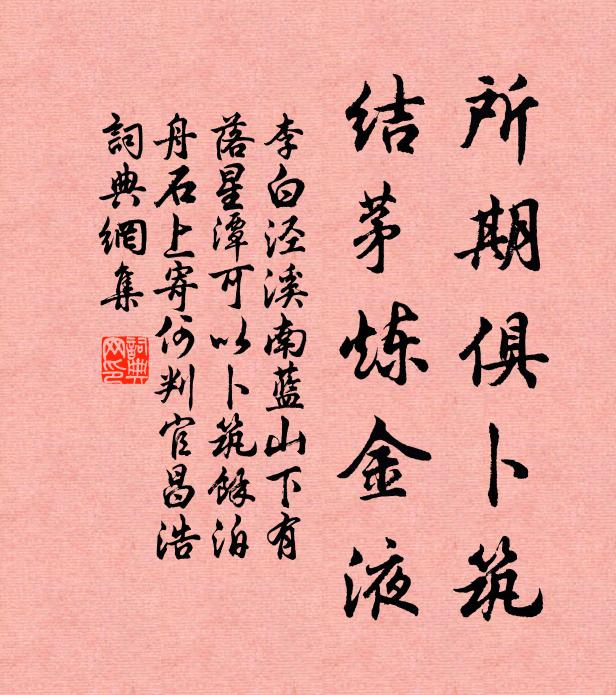 所期俱卜筑
结茅炼金液
李白泾溪南蓝山下有
落星潭可以卜筑馀泊
舟石上寄何判官昌浩
詞典網集
詞典
网印